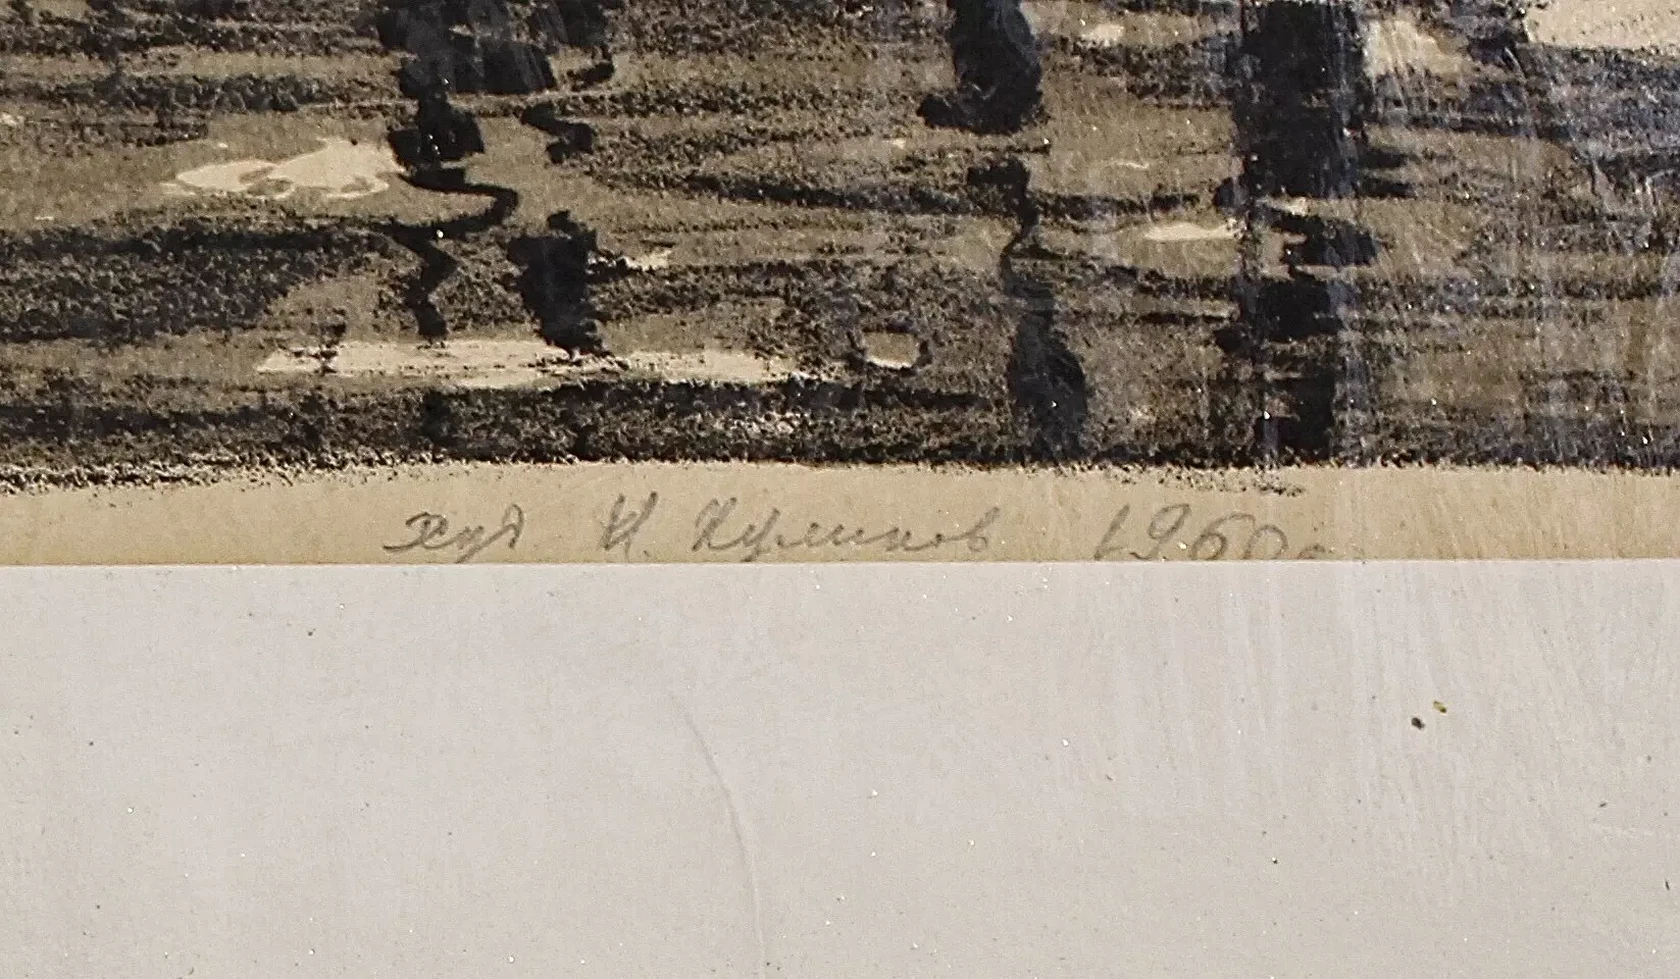 Худ И. Куликов 1960г